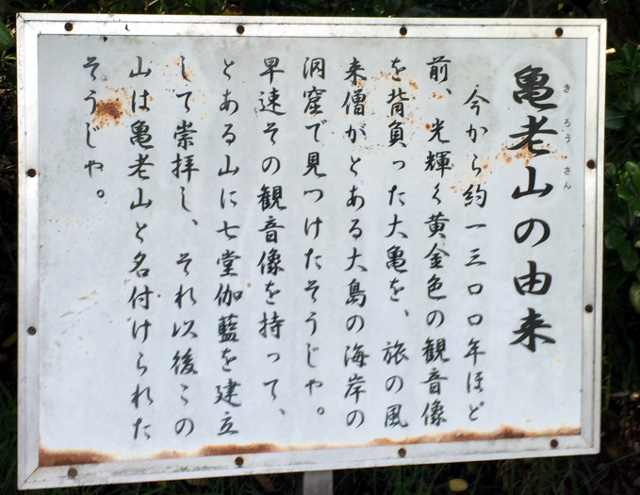 亀老山の由来
きろうさん
今から約一三〇〇年ほど
前、光輝く黄金色の観音像
を背負った大亀を、旅の風
来僧がとある大島の海岸の
洞窟で見つけたそうじゃ。
早速その観音像を持って、
とある山に七堂伽藍を建立
して崇拝し、それ以後この
山は亀老山と名付けられた
そうじゃ。